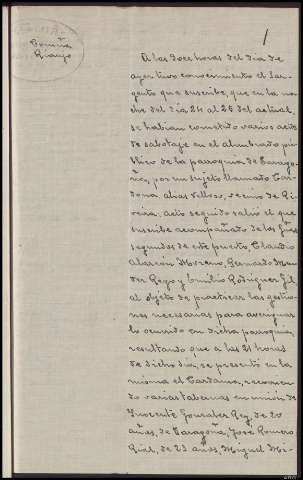 Coruña
Rianjo
1
A las doce horas del dia de
ayer tuvo conocimiento el Sar-
gento que suscribe, que en la no-
che del dia 24 al 25 del actual,
se habian cometido varios actos
de sabotaje en el alumbrado pú-
blico de la parroquia de Tarago-
ña, por un sujeto llamado Car-
dona alias Velloso, vecino de Ri-
veira. Acto seguido salió el que
suscribe acompañado de los
segundos de este puesto, Claudio
Alarcón Moreno, Ricardo
Rego y Emilio Rodriguez Gil,
al objeto de practicar las gestio-
nes necesarias para averiguar
lo ocurrido en dicha parroquia,
resultando que a las 21 horas
de dicho dia, se presentó en la
misma el Cardona, recorrien-
do varias tabernas en union de
Inocente Gonzalez Rey, de 20
años, de Taragoña, José Romero
Rial, de 23 años, Miguel Mi-